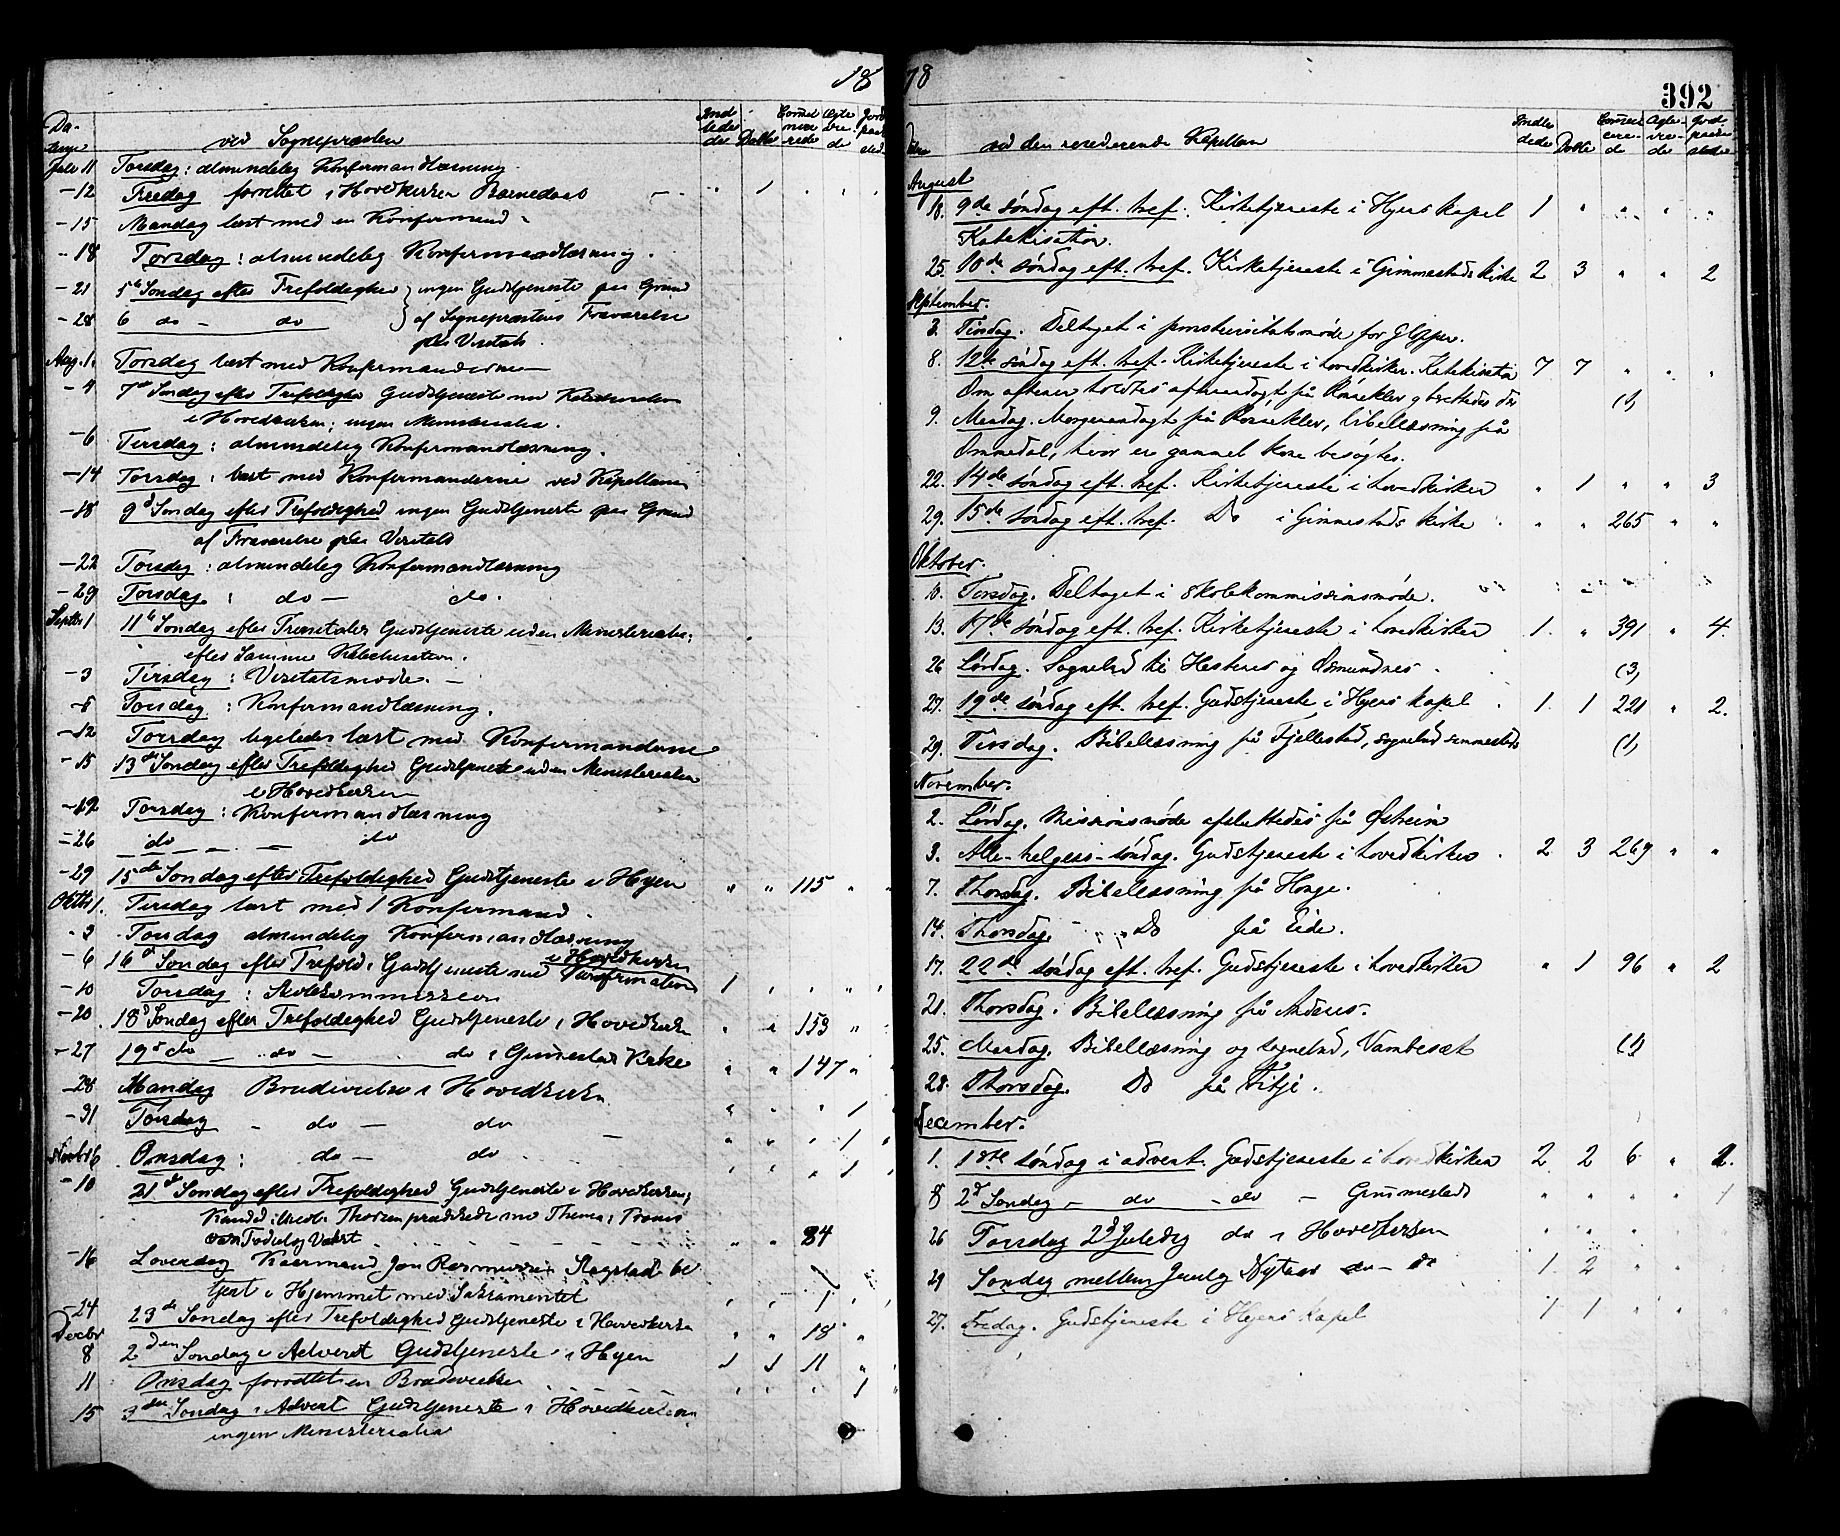 18
Da-
tum
ved Sognepræsten
Ind
lede
de
Døbte
Comu
nice
rede
Ægte
vie-
de
Jord
paa
sted
Juli 11 Torsdag: almindelig Konfirmandlæsning
-12 Fredag forrettet i Hovedkirken Barnedaab 1
-15 Mandag læst med en Konfirmand
-18 Torsdag: almindelig Konfirmandlæsning.
-21 5te Søndag efter Trefoldighed } ingen Gudstjeneste paa Grund
-28 6 do - do } af Sognepræstens Fraværelse
paa Visitats
Aug. 1. Torsdag læst med Konfirmanderne
-4 7de Søndag efter Trefoldighed Gudstjeneste med Katechisation
i Hovedkirken; ingen Ministerialia.
-6 Tirsdag: almindelig Konfirmandlæsning.
-14 Torsdag: læst med Konfirmanderne ved Kapellanen
-18 9d Søndag efter Trefoldighed ingen Gudstjeneste paa Grund
af Fraværelse paa Visitats
-22 Torsdag: almindelig Konfirmandlæsning
-29 Torsdag: do - do.
Septbr 1 11te Søndag efter Gudstjeneste uden Ministerialia;
efter Samme Katechisation.
-3 Tirsdag: Visitatsmøde.
-5 Torsdag: Konfirmandlæsning.
-12 Torsdag ligeledes læst med Konfirmanderne
-15 13de Søndag efter Trefoldighed Gudstjeneste uden Ministerialia
i Hovedkirken
-19 Torsdag: Konfirmandlæsning
-26 do do
-29 15de Søndag efter Trefoldighed Gudstjeneste i Hyen " " 115 " "
Oktbr 1. Tirsdag læst med 1 Konfirmand.
-3 Torsdag almindelig Konfirmandlæsning
i Hovedkirken
-6 16d Søndag efter Trefold: Gudstjeneste med Konfirmation 1 " " " "
-10 Torsdag: Skolekommission
-20 18d Søndag efter Trefoldighed Gudstjeneste i Hovedkirken " " 153 " "
-27 19de do - do - do i Gimmestad Kirke " " 147 " "
-28 Mandag Brudevielse i Hovedkirken " " " 1 "
-31 Torsdag - do - do " " " 1 "
Novbr 6 Onsdag: do - do " " " 1 "
-10 21de Søndag efter Trefoldighed Gudstjeneste i Hovedkirken;
Kandid. theol. Thorsen prædikede med Thema: Troens
Fødsel og Væxt " " 84
-16 Løverdag Kaarmand Jon Rasmussen Rygstad be
tjent i Hjemmet med Sakramentet " " 1 "
-24 23de Søndag efter Trefoldighed Gudstjeneste i Hovedkirken " " 18 "
Decbr
8 2den Søndag i Advent Gudstjeneste i Hyen 1 1 11 " "
11 Onsdag forrettet en Brudevielse " " " 1 "
15 3die Søndag i Advent Gudstjeneste i Hovedkirken
ingen Ministerialia
78
392
ved den residerende Kapellan
Indle
dede
Døbte
Comuni
cere-
de
Ægte-
vie-
de
Jord-
paaka
stede
August
18. 9de søndag eft. tref. Kirketjeneste i Hyens kapel 1 " " " "
Katekisation.
25. 10de søndag eft. tref. Kirketjeneste i Gimmestads kirke 2 3 " " 2
September.
3. Tirsdag. Deltaget i prousteivisitatsmøde for Gloppen.
8. 12te søndag eft. tref. Kirketjeneste i hovedkirken. Katekisation 7 7 " " "
Om aftenen holdtes aftenandagt på Rønnekleiv (1)
9. Mandag. Morgenandagt på Rønnekleiv, bibellæsning på
Ommedal, hvor en gammel kone besøgtes.
22. 14de søndag eft. tref. Kirketjeneste i hovedkirken " 1 " " 3
29. 15de søndag eft. tref. Do i Gimmestads kirke " " 265 " "
Oktober.
10. Torsdag. Deltaget i skolekommissionsmøde.
13. 17de søndag eft. tref. Kirketjeneste i hovedkirken 1. " 391 " 4.
26 Lørdag. Sognebud til Hestenes og Åsmundnes. (3)
27. 19de søndag eft. tref. Gudstjeneste i Hyens kapel 1. 1 221 " 2.
29. Tirsdag. Bibellæsning på Fjellestad, sognebud sammesteds (1)
November.
2. Lørdag. Missionsmøde afsluttedes på Østrein
3. Alle-helgens-søndag. Gudstjeneste i hovedkirken 2 3 269 " "
7. Thorsdag. Bibellæsning på Hauge.
14. Thorsdag. Do på Eide.
17. 22de søndag eft. tref. Gudstjeneste i hovedkirken " 1 96 " 2
21. Thorsdag. Bibellæsning på Andenes.
25. Mandag. Bibellæsning og sognebud, Vambeset (1)
28. Thorsdag. Do på Fitje.
December.
1. 1ste søndag i advent. Gudstjeneste i hovedkirken 2 2 6 " 2.
8 2d Søndag - do - do - Gimmestads " " " " 1
26 Torsdag 2d Juledag do i Hovedkirken " " " "
29 Søndag mellem Juul og Nytaar do - do 1. 2 " "
27. Fredag. Gudstjeneste i Hyens kapel 1 1 " " "